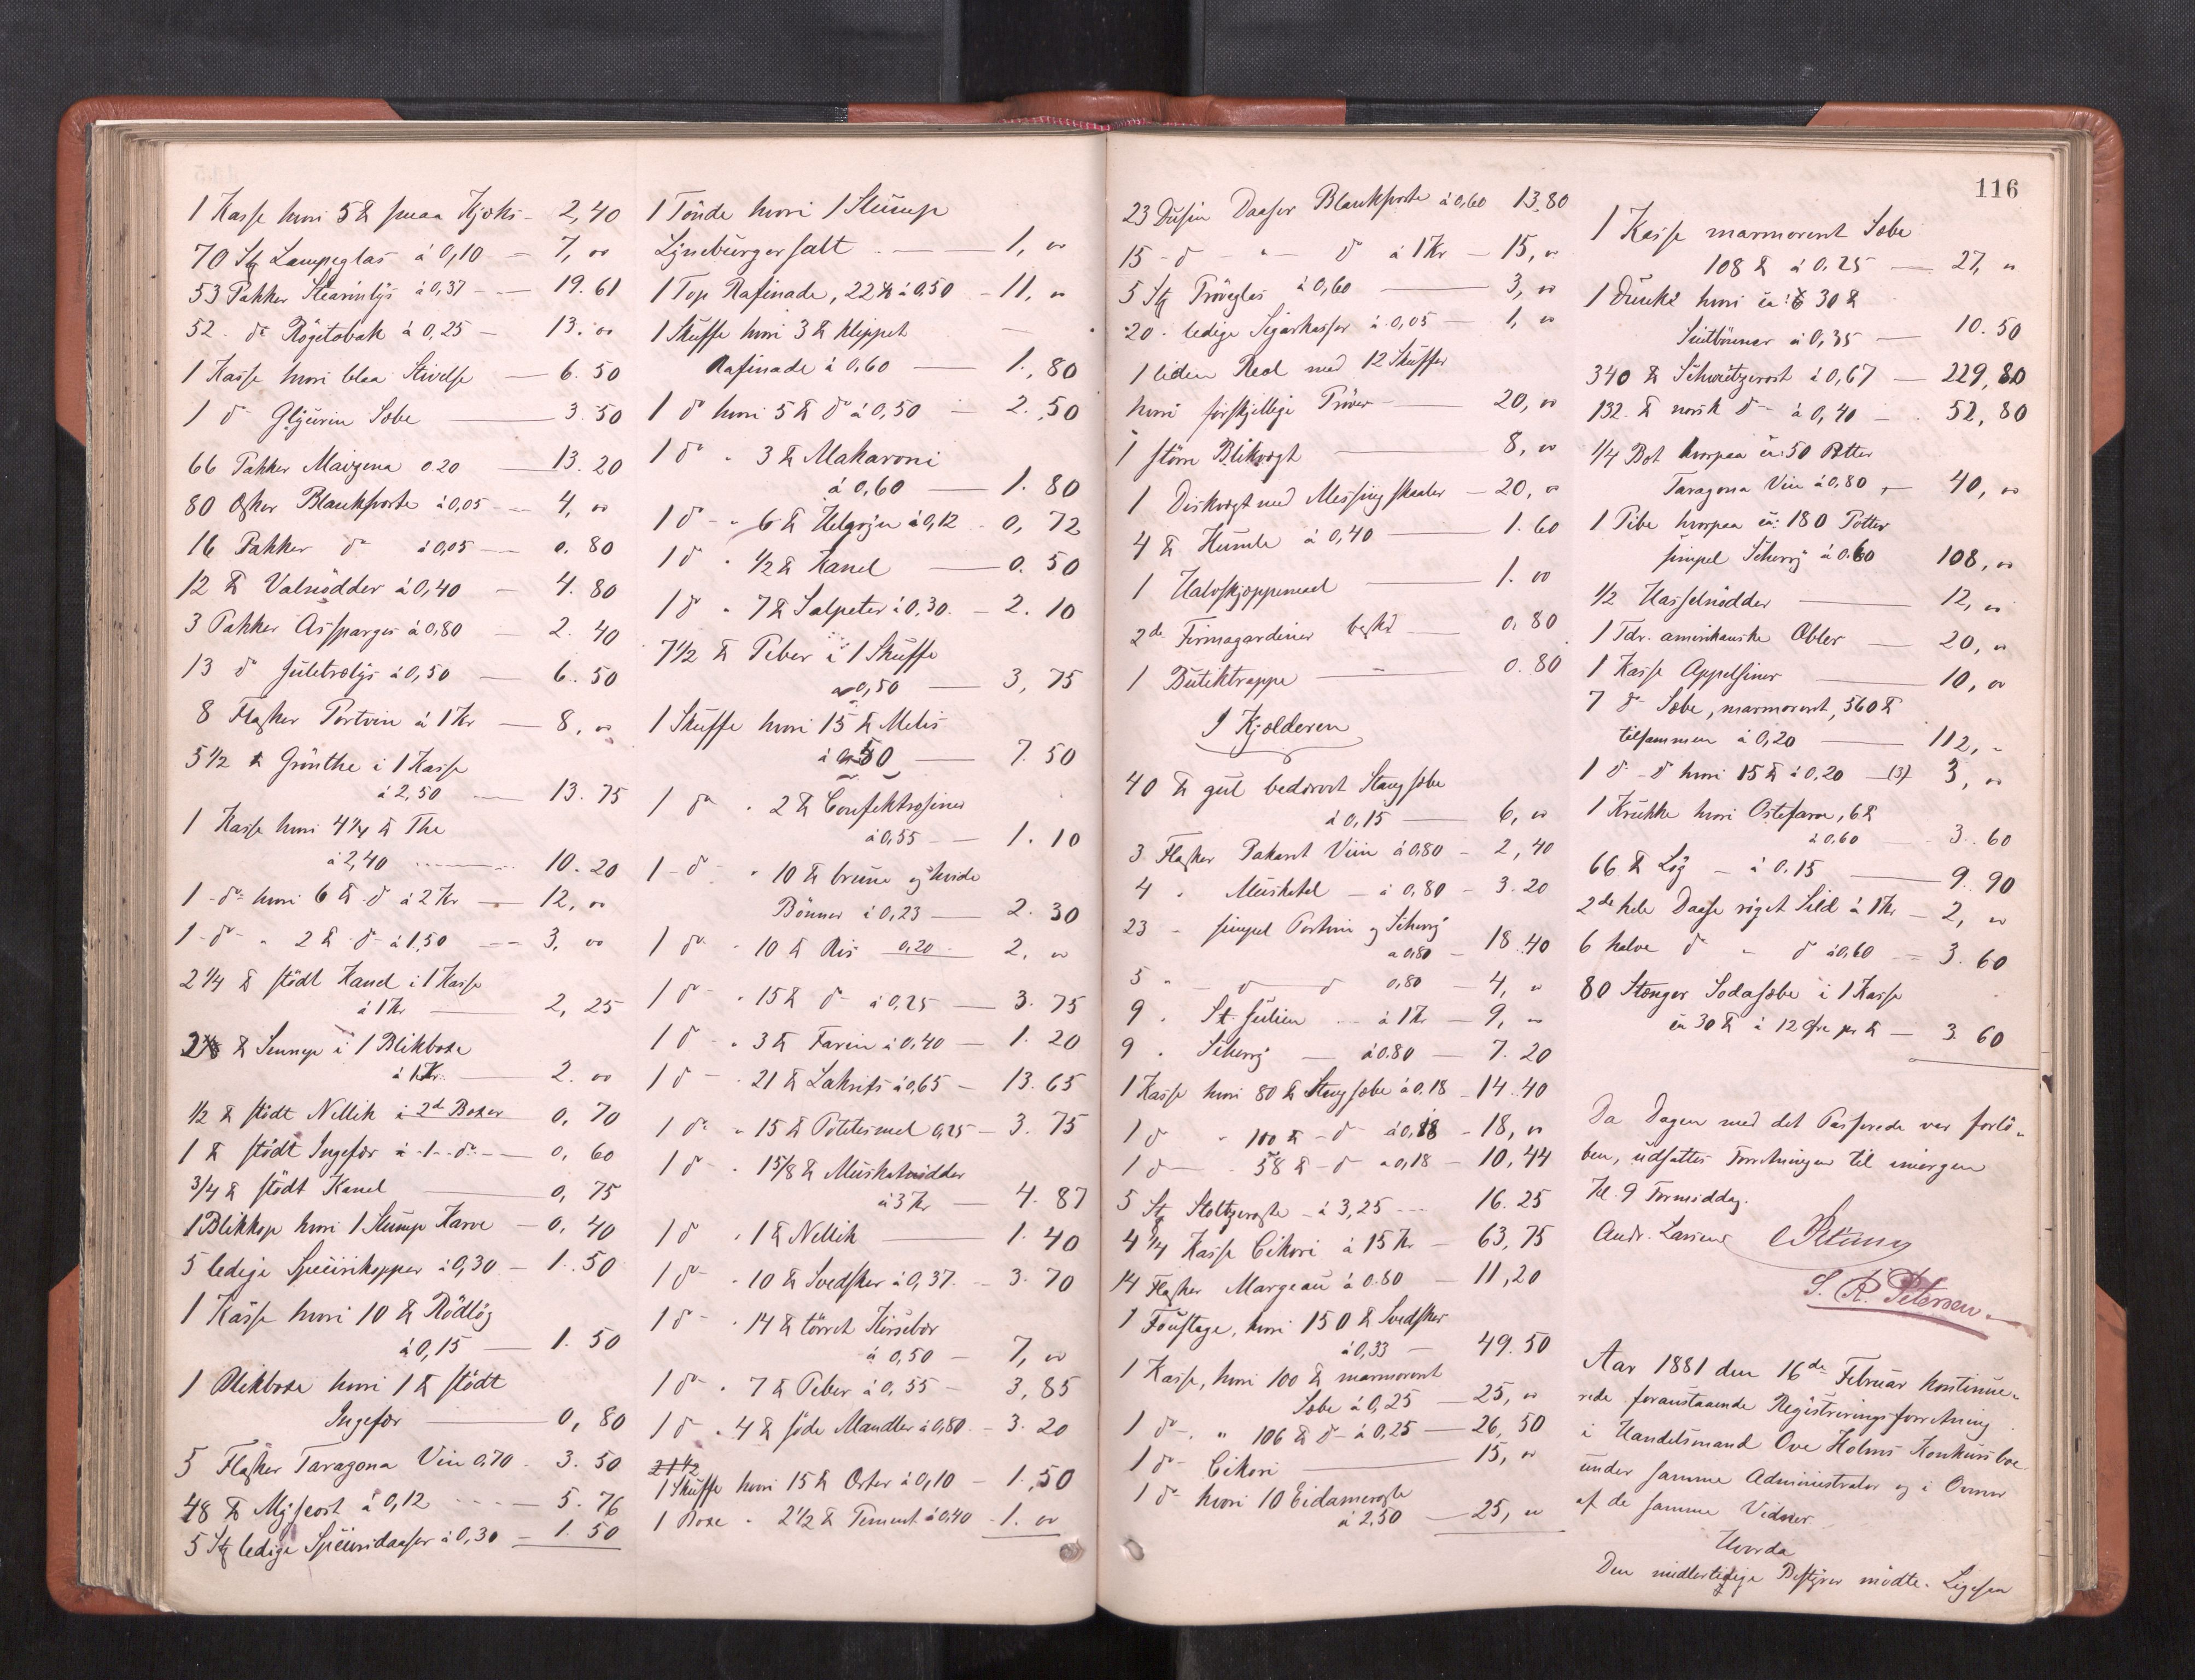 1 Kasse hvori 5 ℔ smaa Kjæks - 2,40
70 Stk Lampeglas á 0,10 - 7, 00
53 Pakker Stearinlys á 0,37 - 19.61
52 do Rögetobak á 0,25 - 13.00
1 Kasse hvori blaa Stivelse - 6.50
1 do Glycerin Sæbe - 3.50
66 Pakker Maizena 0.20 - 13.20
80 Æsker Blanksværte á 0,05 - 4, 00
16 Pakker do á 0,05 - 0.80
12 ℔ Valnödder á 0,40 - 4.80
3 Pakker Asparges á 0,80 - 2.40
13 do Juletrælys á 0,50 - 6.50
8 Flasker Portvin á 1 Kr - 8, 00
5 1/2 ℔ Grönthe i 1 Kasse
á 2,50 - 13.75
1 Kasse hvori 4 1/4 ℔ The
á 2,40 - 10.20
1 do hvori 6 ℔ do á 2 Kr - 12, 00
1 do " 2 ℔ do á 1,50 - 3, 00
2 1/4 ℔ stödt Kanel i 1 Kasse
á 1 Kr - 2,25
2 ℔ Sennep i 1 Blikboxe
á 1 Kr. - 2.00
1/2 ℔ stödt Nellik i 2de Boxer 0,70
1 ℔ stödt Ingefær i 1 do - 0,60
3/4 ℔ stödt Kanel - 0,75
1 Blikkop hvori 1 Slump Karve - 0,40
5 ledige Specerikopper á 0,30 - 1.50
1 Kasse hvori 10 ℔ Rödlög
á 0,15 - 1.50
1 Blikboxe hvori 1 ℔ stödt
Ingefær - 0,80
5 Flasker Taragona Vin 0.70 - 3.50
48 ℔ Myseost á 0,12 - 5.76
5 Stk ledige Specceridaaser á 0,30 - 1.50
1 Tönde hvori 1 Slump
Lyneburgersalt - 1, 00
1 Top Rafinade, 22 ℔ á 0,50 - 11, 00
1 Skuffe hvori 3 ℔ klippet
Rafinade á 0,60 - 1,80
1 do hvori 5 ℔ do á 0,50 - 2.50
1 do " 3 ℔ Makaroni
á 0,60 - 1.80
1 do " 6 ℔ Helgryn á 0,12 - 0,72
1 do " 1/2 ℔ Kanel - 0.50
1 do " 7 ℔ Salpeter á 0,30 - 2.10
7 1/2 ℔ Peber i 1 Skuffe
á 0,50 - 3,75
1 Skuffe hvori 15 ℔ Melis
á 0.50 - 7.50
1 do " 2 ℔ Confektrosiner
á 0,55 - 1.10
1 do " 10 ℔ brune og hvide
Bönner á 0,23 - 2.30
1 do " 10 ℔ Ris 0,20 - 2, 00
1 do " 15 ℔ do á 0,25 - 3.75
1 do " 3 ℔ Farin á 0,40 - 1.20
1 do " 21 ℔ Lakrits á 0,65 - 13.65
1 do " 15 ℔ Potetesmel 0,25 - 3.75
1 do " 1 5/8 ℔ Muskatnödder
á 3 Kr - 4.87
1 do " 1 ℔ Nellik - 1.40
1 do " 10 ℔ Svedsker á 0,37 - 3.70
1 do " 14 ℔ törret Kirsebær
á 0,50 - 7, 00
1 do " 7 ℔ Peber á 0,55 - 3,85
1 do " 4 ℔ söde Mandler á 0,80 - 3.20
2 1 1/2
1 Skuffe hvori 15 ℔ Orter á 0,10 - 1.50
1 Boxe " 2 1/2 ℔ Cement á 0,40 - 1.00
23 Dusin Daaser Blanksværte á 0,60 13,80
15 do " do á 1 Kr - 15, 00
5 Stk Pröveglas á 0,60 - 3, 00
20 ledige Sigarkasser á 0,05 - 1, 00
1 liden Reol med 12 Skuffer
hvori forskjellige Pröver - 20, 00
1 större Blikvægt - 8, 00
1 Diskvægt med Messingskaaler - 20, 00
4 ℔ Humle á 0,40 - 1.60
1 Halvskjæppemaal - 1.00
2de Firmagardiner besk. - 0.80
1 Butiktrappe - 0.80
I Kjælderen
40 ℔ gul bedærvet Stangsæbe
á 0,15 - 6, 00
3 Flasker Pakaret Viin á 0,80 - 2,40
4 " Muskatel - á 0,80 - 3.20
23 " simpel Portvin og Scherry
a 0,80 - 18.40
5 " do do 0,80 - 4, 00
9 " St Julien - á 1 Kr - 9, 00
9 " Scherry - á 0.80 - 7.20
1 Kasse hvori 80 ℔ Stangsæbe á 0.18 - 14.40
1 do " 100 ℔ do á 0,18 - 18, 00
1 do " 58 ℔ do a 0,18 - 10,44
5 Stk Stoltzeroste á 3,25 - 16.25
4 1/4 Kasse Cikori á 15 Kr - 63,75
14 Flasker Margeau á 0.80 - 11,20
1 Foustage, hvori 150 ℔ Svedsker
á 0,33 - 49.50
1 Kasse, hvori 100 ℔ marmoreret
Sæbe á 0,25 - 25, 00
1 do " 106 ℔ do á 0,25 - 26,50
1 do Cikori - 15, 00
1 do hvori 10 Eidameroste
á 2,50 - 25, 00
116
1 Kasse marmoreret Sæbe
108 ℔ á 0,25 - 27, 00
1 Dunk hvori ca: 30 ℔
Suitbönner á 0,35 - 10.50
340 ℔ Schweitzerost á 0,67 - 229,80
132 ℔ norsk do á 0,40 - 52,80
1/4 Bot hvorpaa ca: 50 Potter
Taragona Vin á 0,80 - 40, 00
1 Pibe hvorpaa ca: 180 Potter
simpel Scherry á 0.60 108, 00
1/2 Hasselnödder - 12, 00
1 Tdr. amerikanske Æbler - 20, 00
1 Kasse Appelsiner - 10, 00
7 do Sæbe, marmoreret, 560 ℔
tilsammen á 0,20 - 112, -
1 do - do hvori 15 ℔ á 0,20 - (3) 3, 00
1 Krukke hvori Ostefarve, 6 ℔
á 0,60 3.60
66 ℔ Lög - á 0.15 - 9.90
2de hele Daase röget Sild á 1 Kr - 2, 00
6 halve do " do á 0,60 - 3.60
80 Stænger Sodasæbe i 1 Kasse
ca 30 ℔ á 12 Öre pr ℔ - 3.60
Da Dagen med det Passerede var forlö-
ben, udsattes Forretningen til imorgen
Kl. 9 Formiddag.
Andr. Larsen
S. R. Petersen
Aar 1881 den 16de Februar kontinue-
rede foranstaaende Registreringsforretning
i Handelsmand Ove Holms Konkursboe
under samme Administrator og i Overvær
af de samme Vidner
Hvorda
Den midlertidige Bestyrer mödte. Ligesaa